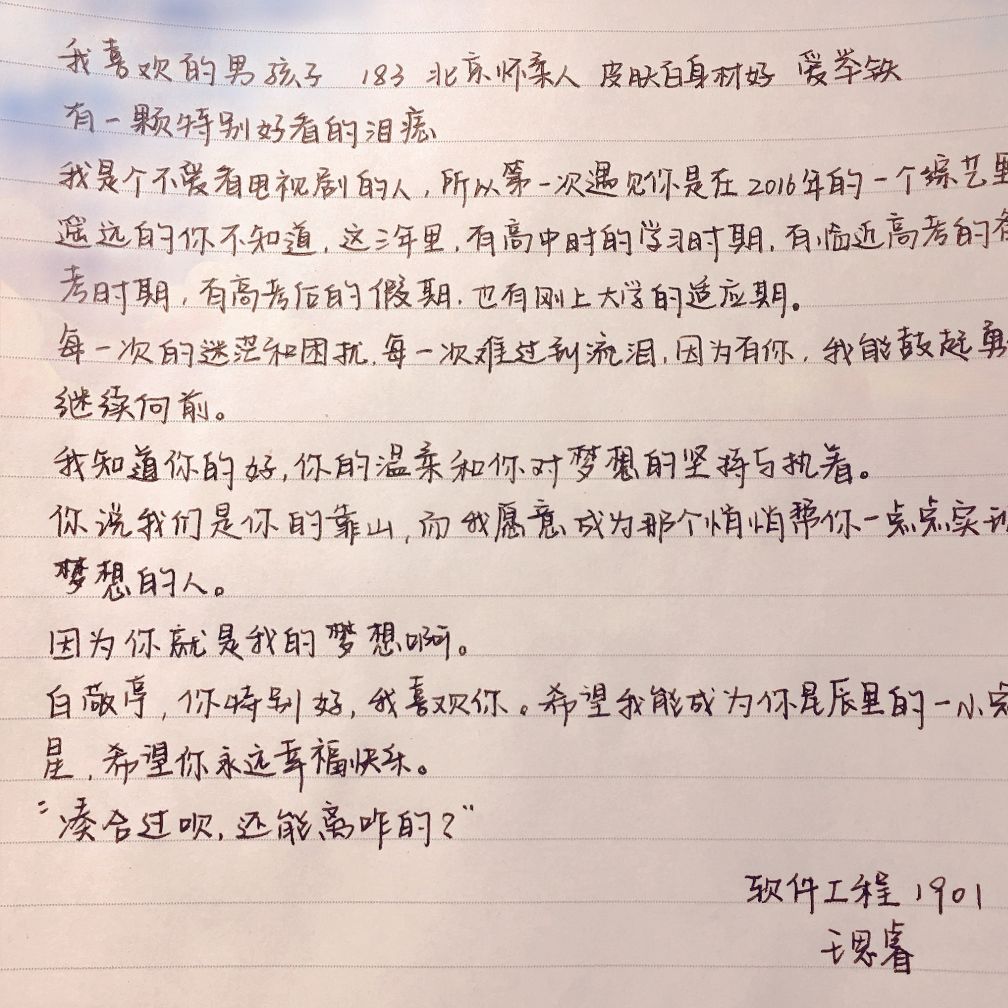 我喜欢的男孩子 183 北京怀柔人 皮肤白身材好 爱举铁
有一颗特别好看的泪痣
我是个不爱看电视剧的人，所以第一次遇见你是在2016年的一个综艺里
遥远的你不知道，这三年里，有高中时的学习时期，有临近高考的备
考时期，有高考后的假期，也有刚上大学的适应期。
每一次的迷茫和困扰，每一次难过到流泪，因为有你，我能鼓起勇
继续向前。
我知道你的好，你的温柔和你对梦想的坚持与执着。
你说我们是你的靠山，而我愿意成为那个悄悄帮你一点点实现
梦想的人。
因为你就是我的梦想啊。
白敬亭，你特别好，我喜欢你。希望我能成为你星辰里的一小点
星，希望你永远幸福快乐。
“凑合过呗，还能离咋的？”
软件工程1901
王思睿